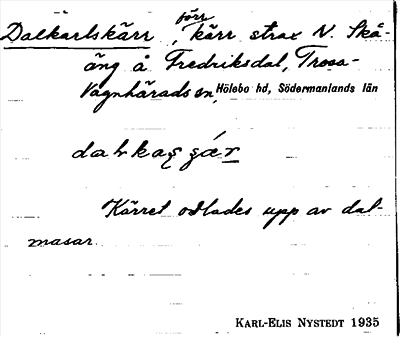 Dalkarlskärr, förr kärr strax N. Skå-
äng å Fredriksdal, Trosa-
Vagnhärads sn, Hölebo hd, Södermanlands län
dalkas̨ s̨ár
Kärret odlades upp av dal-
masar.
KARL-ELIS NYSTEDT 1935